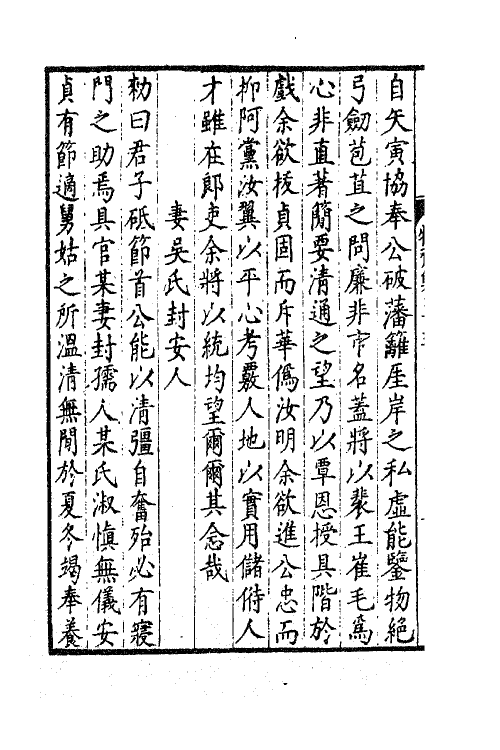 自矢寅協奉公破藩籬厓岸之私虛能鑒物絕
弓劒苞苴之問廉非市名蓋將以裴王崔毛爲
心非直著簡要清通之望乃以覃恩授具階於
戲余欲㧞貞固而斥華僞汝明余欲進公忠而
抑阿黨汝翼以平心考覈人地以實用儲偫人
才雖在郎吏余將以統均望爾爾其念哉
妻吳氏封安人
勑曰君子砥節首公能以清彊自奮殆必有寢
門之助焉具官某妻封孺人某氏淑愼無儀安
貞有節適舅姑之所溫清無閒於夏冬竭奉養